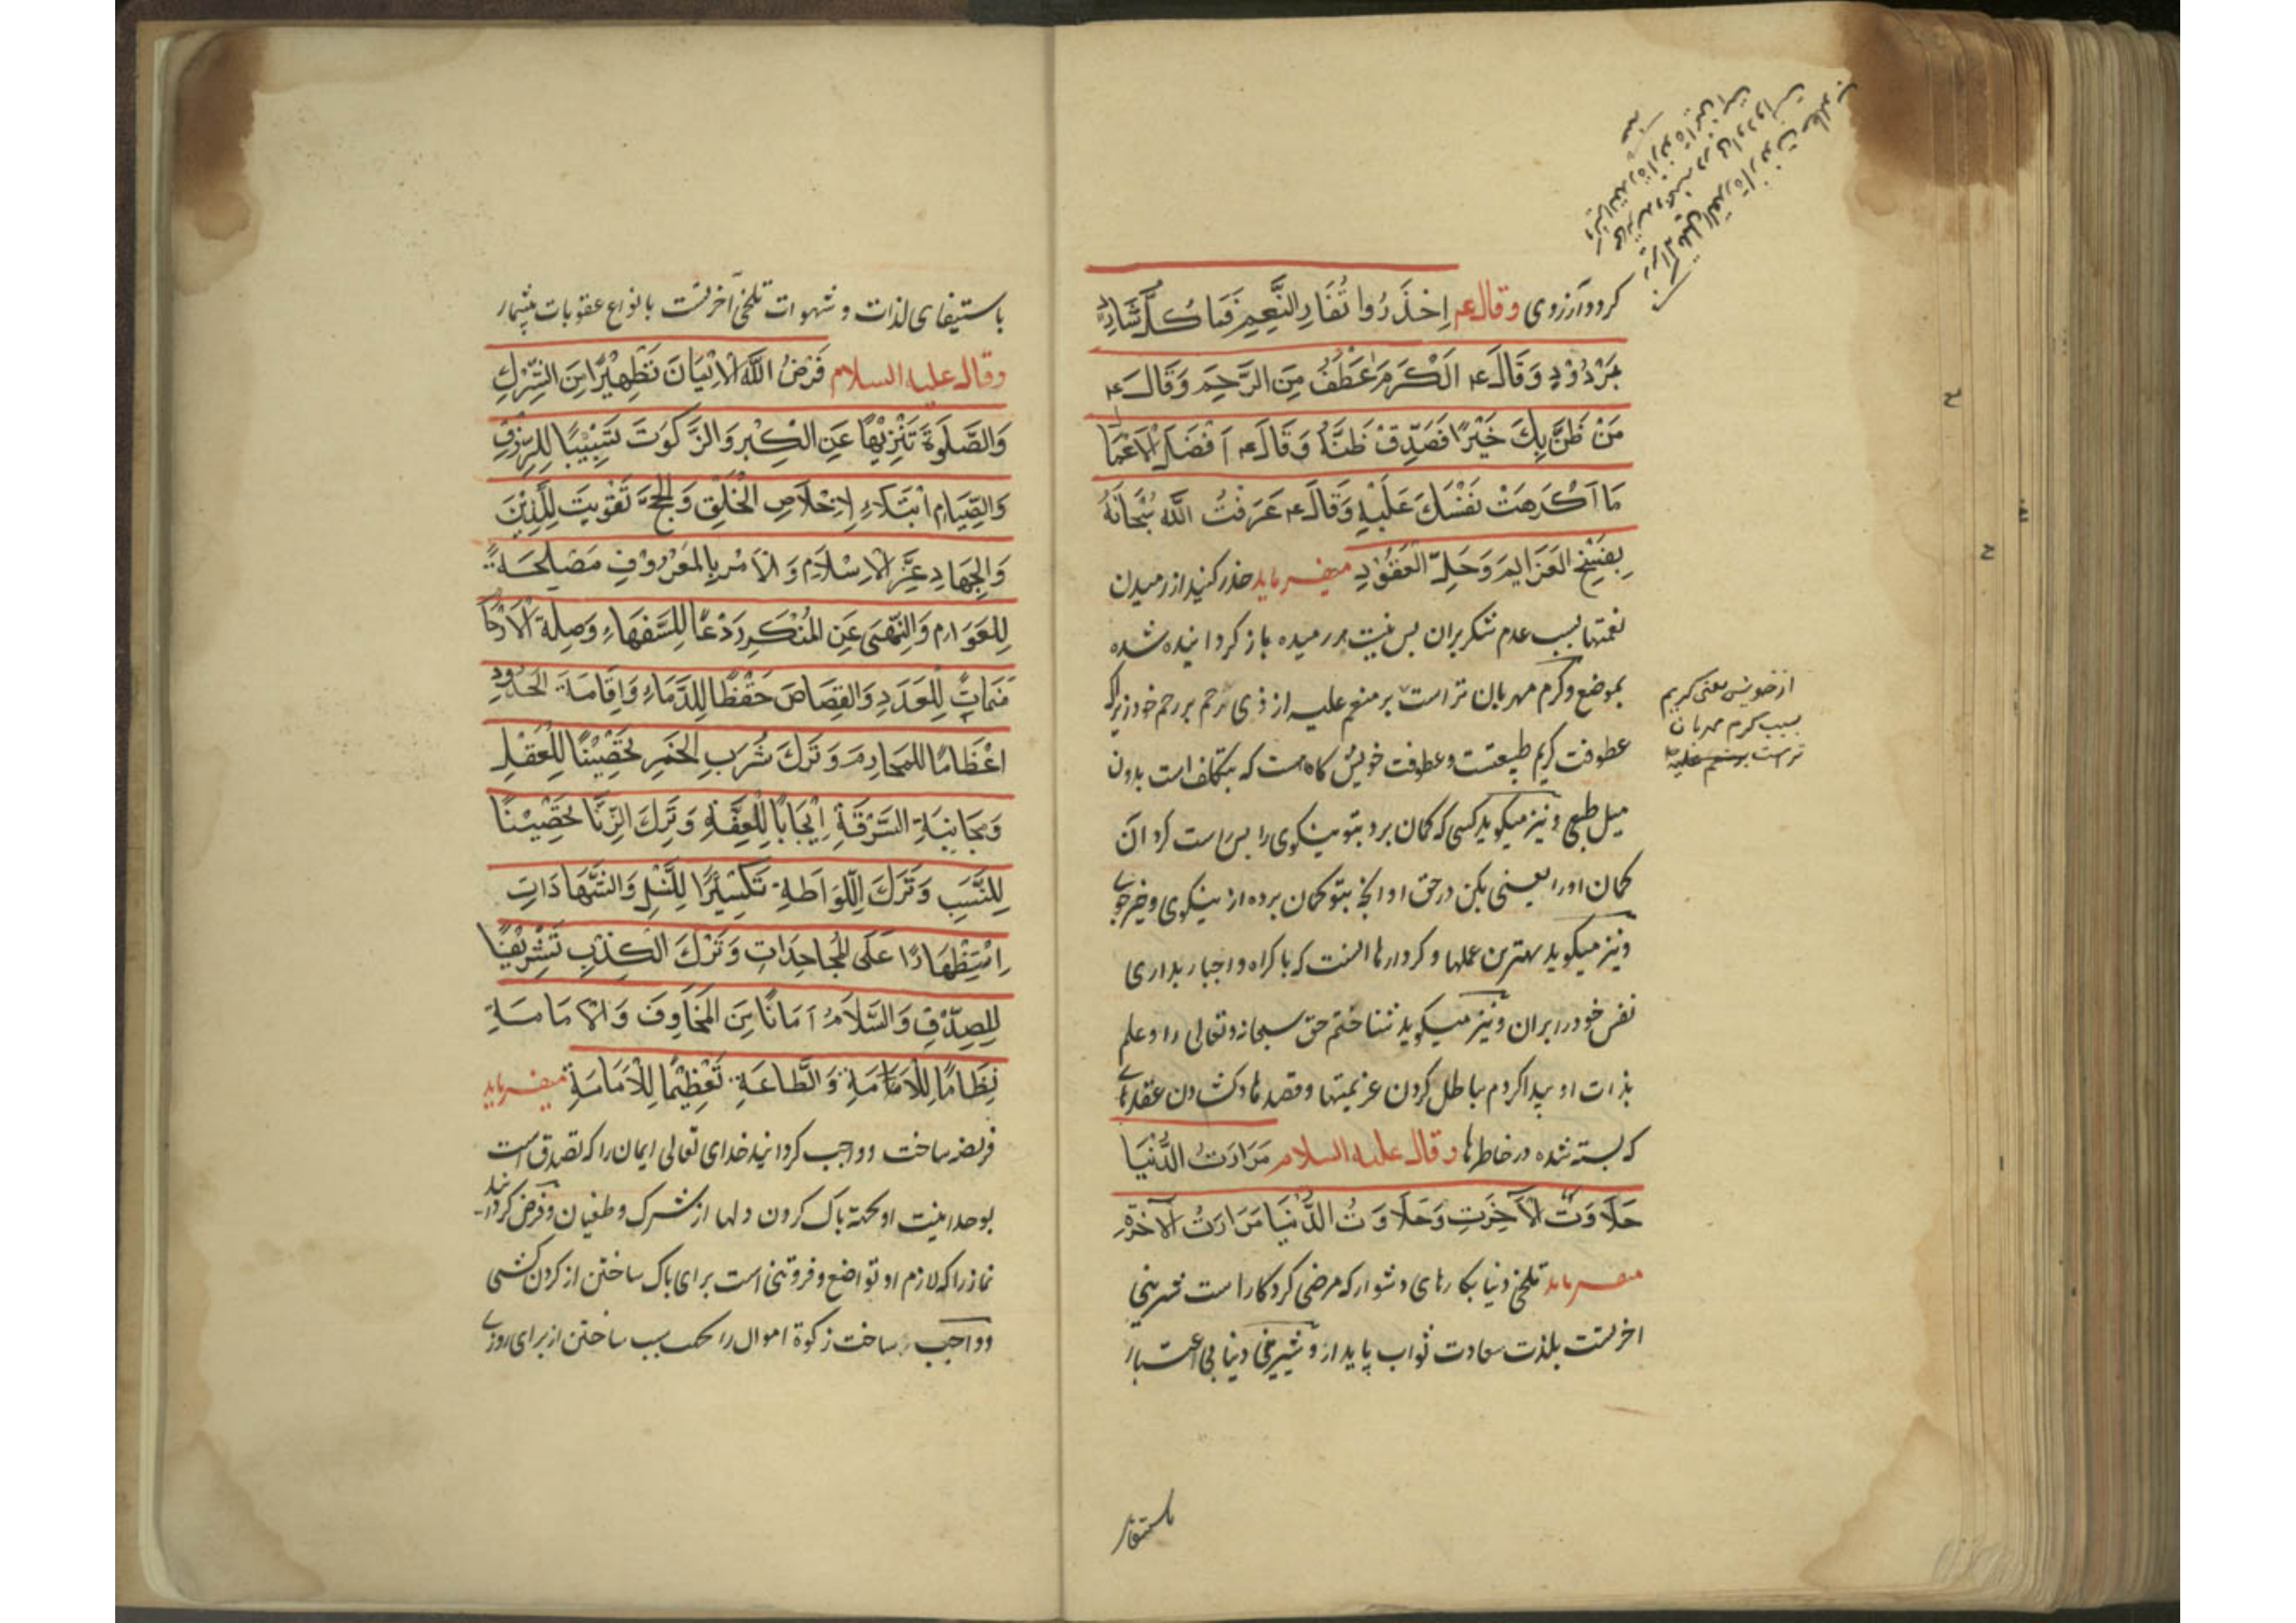 کردو آرزوی وقال ع اِحْذَرُوا نُفَارِ النَّعِیمِ فَمَا کُلُّ شَارِدٍ
بِمَرْدُوْدٍ وَقَالَ ع اَلْکَرَمُ اَعْطَفُ مِنَ الرَّحِمِ وَقَالَ ع
مَنْ ظَنَّ بِكَ خَیْرًا فَصَدِّقْ ظَنَّهُ وَقَالَ ع اَفْضَلُ الْاَعْمَا
مَا اَکْرَهَتْ نَفْسَكَ عَلَیْهِ وَقَالَ ع عَرَفْتُ اللّٰه سُبْحَانَهُ
بِفَسْخِ العَزَایِمِ وَحَلِّ الْعُقُوْدِ میفرماید حذر کنید از رمیدن
نعمتها بسبب عدم شکر بران پس نیست هر رمیده باز کردانیده شده
بموضع وکرم مهربان تر است بر منعم علیه از ذی ترحم بر رحم خود زیراکه
عطوفت کریم طبیعتست وعطوفت خویش کاه هست که بتکلف است بدون
میل طبعی ونیز میکوید کسی که کمان برد بتو نیکوی را پس راست کردان
کمان اورا یعنی بکن در حق او انچه بتو کمان برده از نیکوی وخیر خوبی
ونیز میکوید بهترین عملها وکردارها انست که باکراه واجبار بداری
نفس خود را بران ونیز میکوید شناختم حق سبحانه وتعالی را وعلم
بذات او پیدا کردم بباطل کردن عزیمتها وقصدها وکشادن عقدهای
که بسته شده در خاطرها وقال علیه السلام مَرَارَتُ الدُّنْیَا
حَلَاوَتُ الْآخِرَتِ وَحَلَاوَتُ الدُّنْیَا مَرَارَتُ الْآخِرَةِ
میفرماید تلخی دنیا بکارهای دشوار که مرضی کردکار است شیرینی
اخرتست بلذت سعادت ثواب پایدار وشیرینی دنیا بی اعتبار
از خویش یعنی کریم
بسبب کرم مهربان
ترست
باستیفای لذات وشهوات تلخی آخرتست بانواع عقوبات بیشمار
وقال علیه السلام فَرَضَ اللّٰهُ الْاِیْمَانَ تَطْهِیْرًا مِنَ الشِّرْكِ
وَالصَّلٰوةَ تَنْزِیْهًا عَنِ الْکِبْرِ وَالزَّکٰوتَ تَسْبِیْبًا لِلرِّزْقِ
وَالصِّیَامِ اَبْتَلَاءِ لِاِخْلَاصِ الْخَلْقِ وَالْحَجَّ تَقْوِیَتَ لِلدِّیْنِ
وَالْجِهَادِ عِزَّ الْاِسْلَامِ وَالْاَمْرِ بِالْمَعْرُوْفِ مَصْلِحَةً
لِلعَوَامِ وَالنَّهْیَ عَنِ الْمُنْکَرِ رَدْعًا لِلسُّفَهَاءِ وَصِلَةَ الْاَرْحَا
مَنَمَاتً لِلْعَدَدِ وَالقِصَاصَ حَقْنًا لِلدِّمَاءِ وَاِقَامَةَ الْحُدُودِ
اعْظَامًا لِلمَحَارِمِ وَتَرْكَ شُرْبِ الْخَمْرِ تَحْصِیْنًا لِلْعَقْلِ
وَمُجَانِبَةِ السَّرْقَةِ اِیْجَابًا لِلْعِفَّةِ وَتَرْكَ الزِّنَا تَحْصِیْنًا
لِلنَّسَبِ وَتَرْكَ اللِّوَاطَةِ تَکْثِیْرًا لِلنَّسْلِ وَالشَّهَادَاتِ
اِسْتِظْهَارًا عَلَی الْمُجَاحَدَاتِ وَتَرْكَ الْکِذْبِ تَشْرِیْفًا
لِلصِّدْقِ وَالسَّلَامُ اَمَانًا مِنَ الْمَخَاوِفَ وَالْاِمَامَةِ
نِظَامًا لِلْاِمَامَةِ وَالطَّاعَةِ تَعْظِیْمًا لِلْاِمَامَةِ میفرماید
فریضه ساخت وواجب کردانید خدای تعالی ایمان را که تصدیق است
بوحدانیت او بجهة پاک کردن دلها از شرک وطغیان وفرض کردانید
نماز را که لازم او تواضع وفروتنی است برای پاک ساختن از کردن کشی
وواجب ساخت زکوة اموال را بجهت سبب ساختن از برای روزی